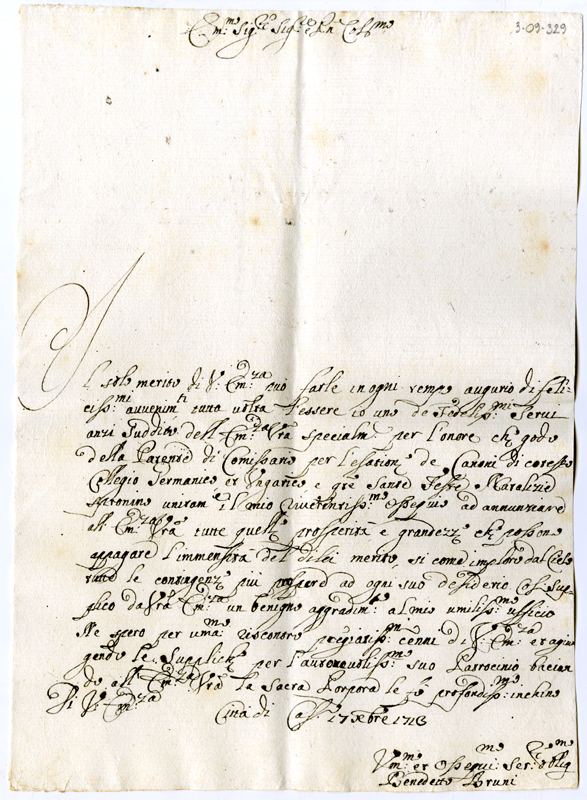 3-09-329
Em:mo Sig:re Sig:re e Pron Col:mo
Il solo merito di V: Em:za può farle in ogni tempo augurio di feli-
ciss:mi avvenim:ti tanto ultra l'essere io uno de Fedeliss:mi Servi
anzi Suddito dell' Em:za Vra specialm: per l'onore che godo
della Patente di Comissario per l'esatione de Canoni di cotesto
Collegio Germanico et Ungarico e qte Sante Feste Natalizie
uniram: il mio riverentiss:mo ossequio ad annunziare
all' Em:za Vra tutte quelle prosperità e grandezze che possono
appagare l'immensità del di lei merito, si come imploro dal Cielo
tutte le contingenze più ad ogni suo desiderio Così Sup-
plico da Vra Em:za un benigno aggradim:to al mio umiliss:mo ufficio
Ne spero per uma:mo riscontro pregiatiss:mi cenni di V: Em:za et agiun
gendo le Suppliche per l'autorevoliss:mo suo Patrocinio bacian
do all' Em:za Vra la Sacra Porpora le fò profondiss:mo inchino
Di V: Em:za
Città di Cast: 17 Xbre 1713
Um:mo et Ossequi:mo Ser:re Oblig:mo
Benedetto Bruni